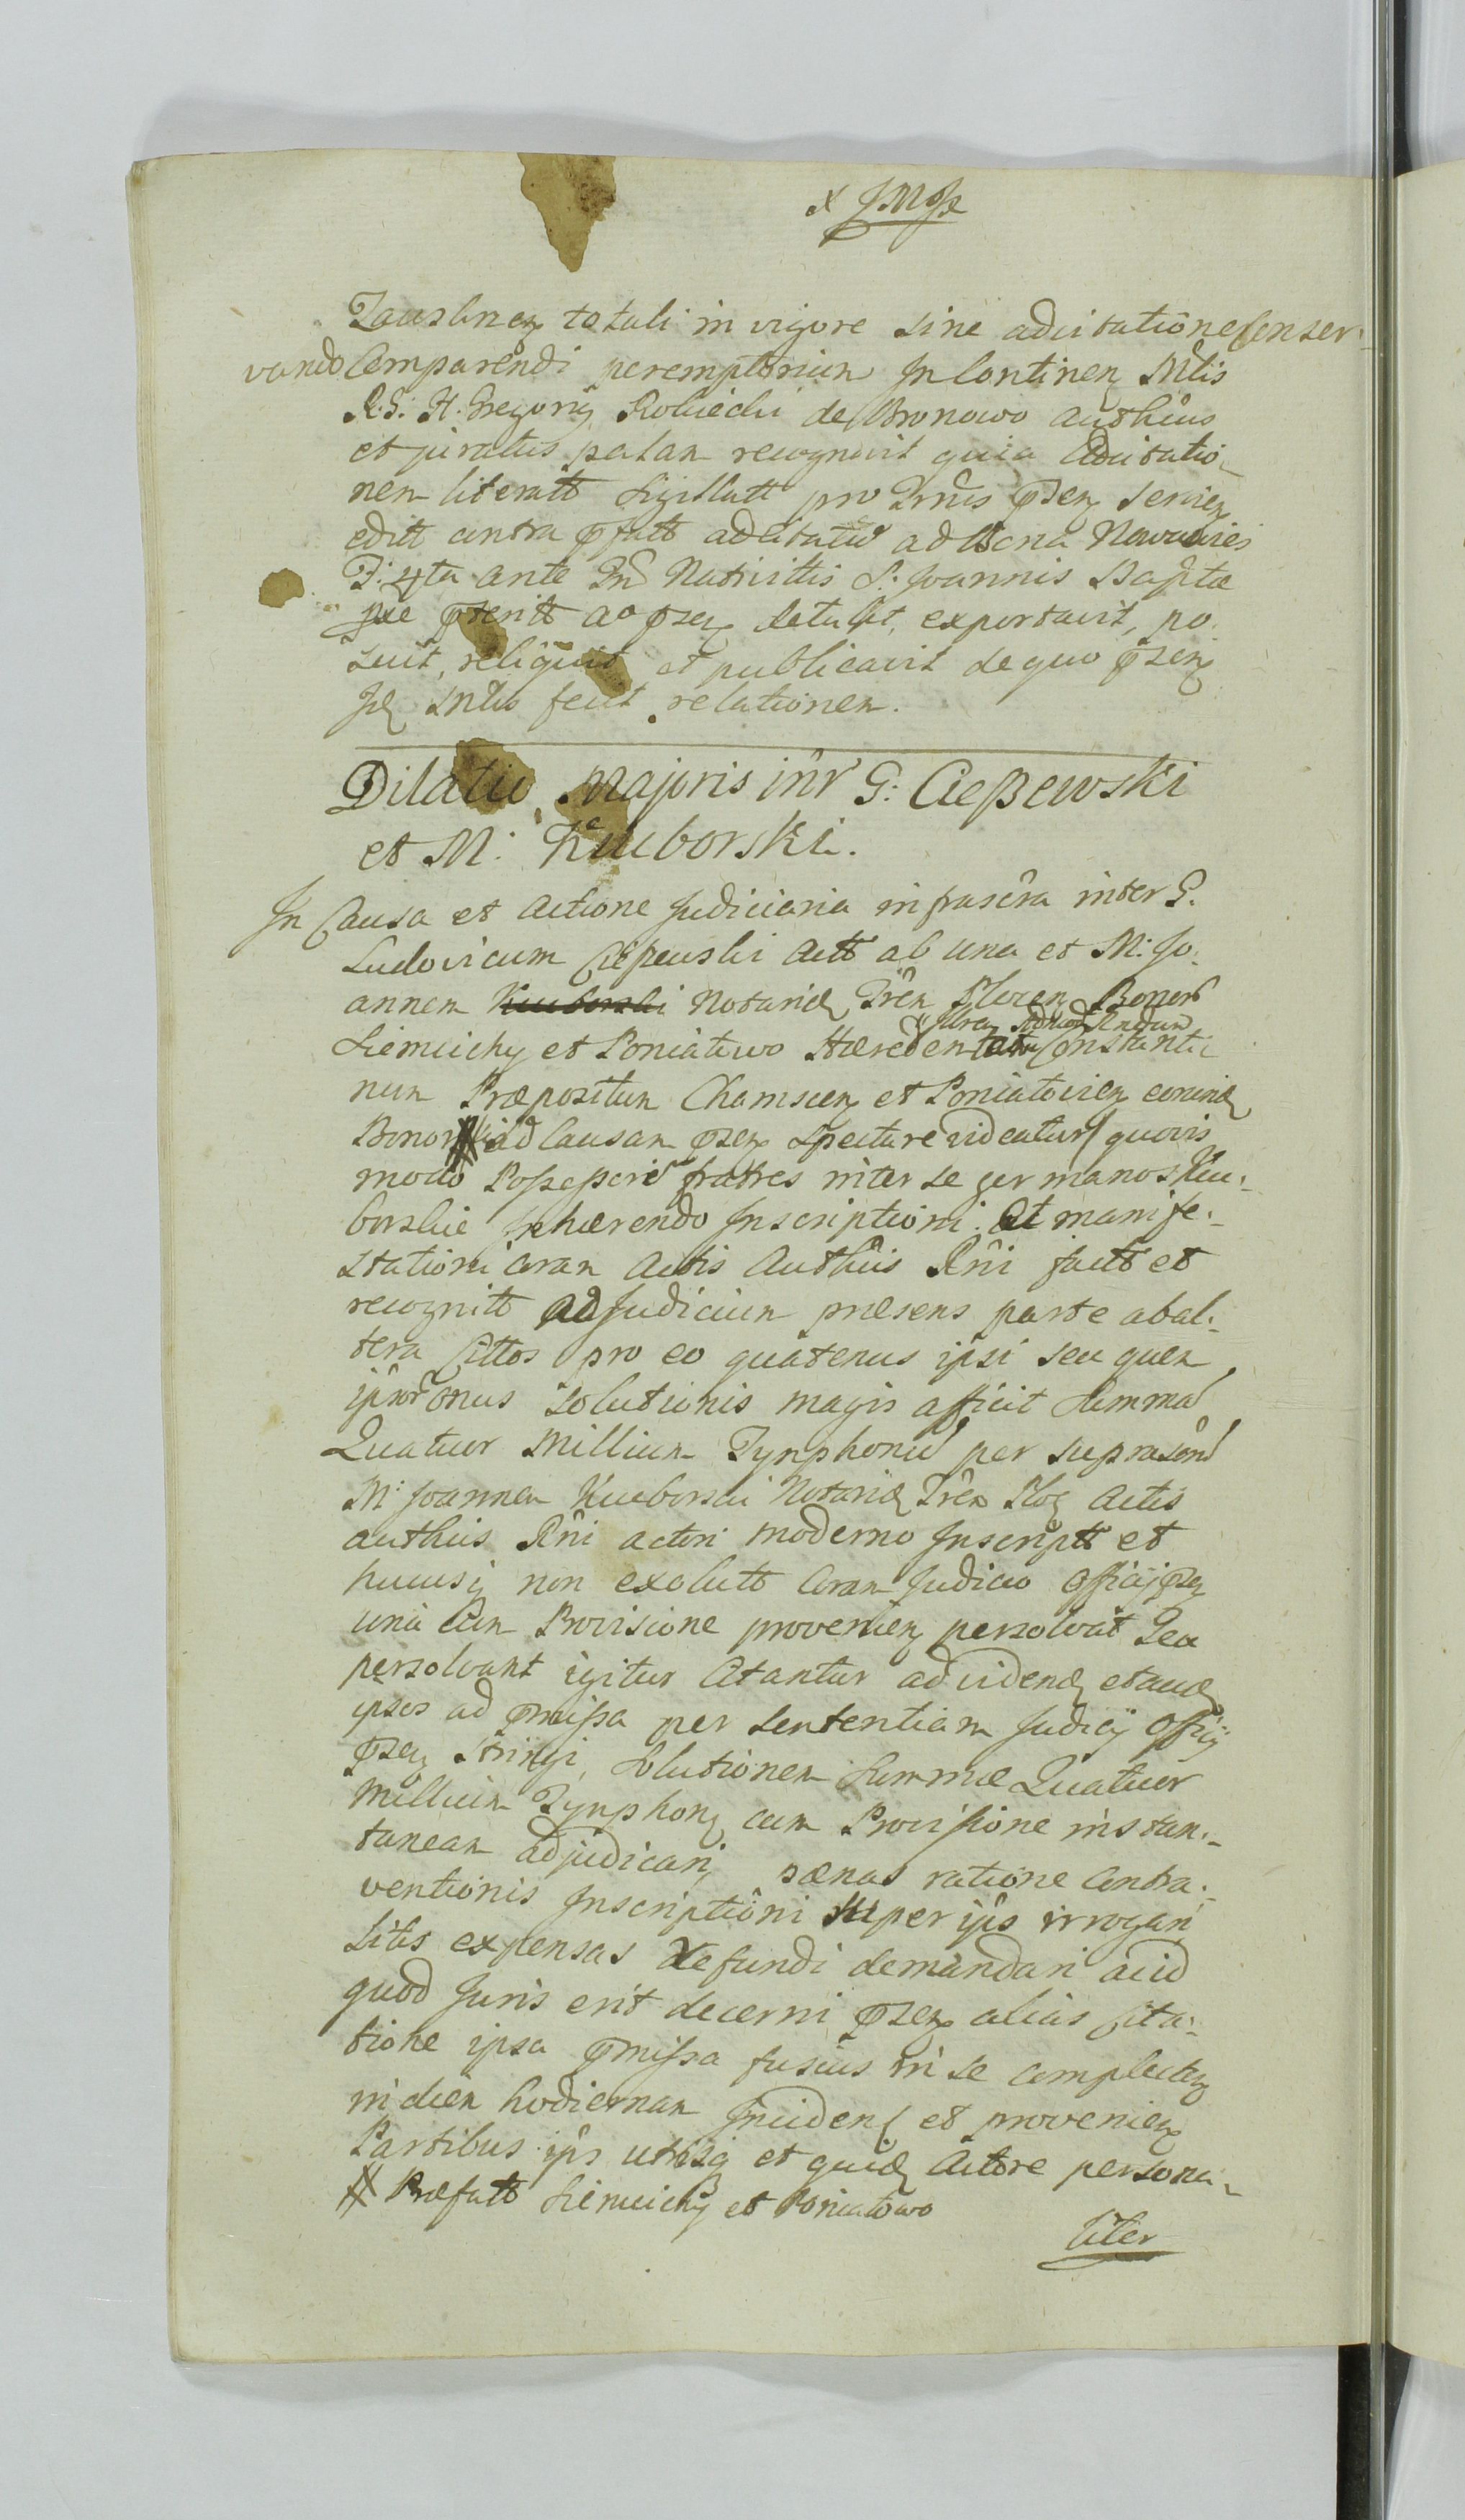 Zausbneꝫ totali in vigore sine adcitatione Conser-
vando Comparendi peremptorium In Continenꝫ Mtis
R. S. H. Gregorij Robiecki de Bronowo authůs
et juratus palam recognovit quia Adcitatio-
nem literatt Sigillatt pro Trnis ꝑsenꝫ servien
editt contra ꝑfatt adcitatū ad Bona Nowawies
F. 4ta ante Fm̄ Nativittis S. Joannis Baptæ
ꝑterit ao ꝑsenꝫ detulit, exportavit, po-
suit, reliquit et publicavit de quo ꝑsenꝫ
fecit relationem.
Dilatio Majoris inr̄ G: Cießewski
et M: Kuuborski.
In Causa et actione Judiciaria infrascra inter G.
Ludovicum Cießewski Actt ab una et M: Jo-
annem Notariū Trēn Plocen Bonor̄
Siemuichy et Poniatowo Hæredem Constanti-
num Præpositum Chamscen et Poniatovien eorund
Bonor ad Causam ꝑsen spectare videatur quovis
modo Possessores fratres inter se germanos Kuu-
borskie Inhærendo Inscriptioni et manife-
stationi coram Actis Authūs Rn̄i factt et
recognitt ad Judicium præsens parte ab al-
tera Cittos pro eo quatenus ipsi seu quem
ipsor̄ onus solutionis magis afficit Summā
Quatuor Millium Tynphonū per suprascrm̄
M: Joannem Kuuborski Notariū Trēn Ploꝫ actis
authūs Rn̄i actori moderno Inscriptt et
hucusq non exolutt Coram Judicio Officij ꝑsen
una Cum Provisione provenien persolvat Seu
persolvant igitur Citantur ad videnđ et auđ
ipsos ad ꝑmissa per Sententiam Judicij Officij
ꝑsen Stringi, Solutionem Summæ Quatuor
Millium Tynphonꝫ cum Provisione instan-
taneam adjudicari, pænas ratione Contra-
ventionis Inscriptioni super ip̄s irrogari
Litis expensas refundi demandari ac id
quod Juris erit decerni ꝑsen alias Cita-
tione ipsa ꝑmissa fusius in se complecten
in diem hodiernam Inciden et provenien
Partibus ip̄s utrisq et quid Actore persona-
# Præfatt Siemuichy et Poniatowo
liter